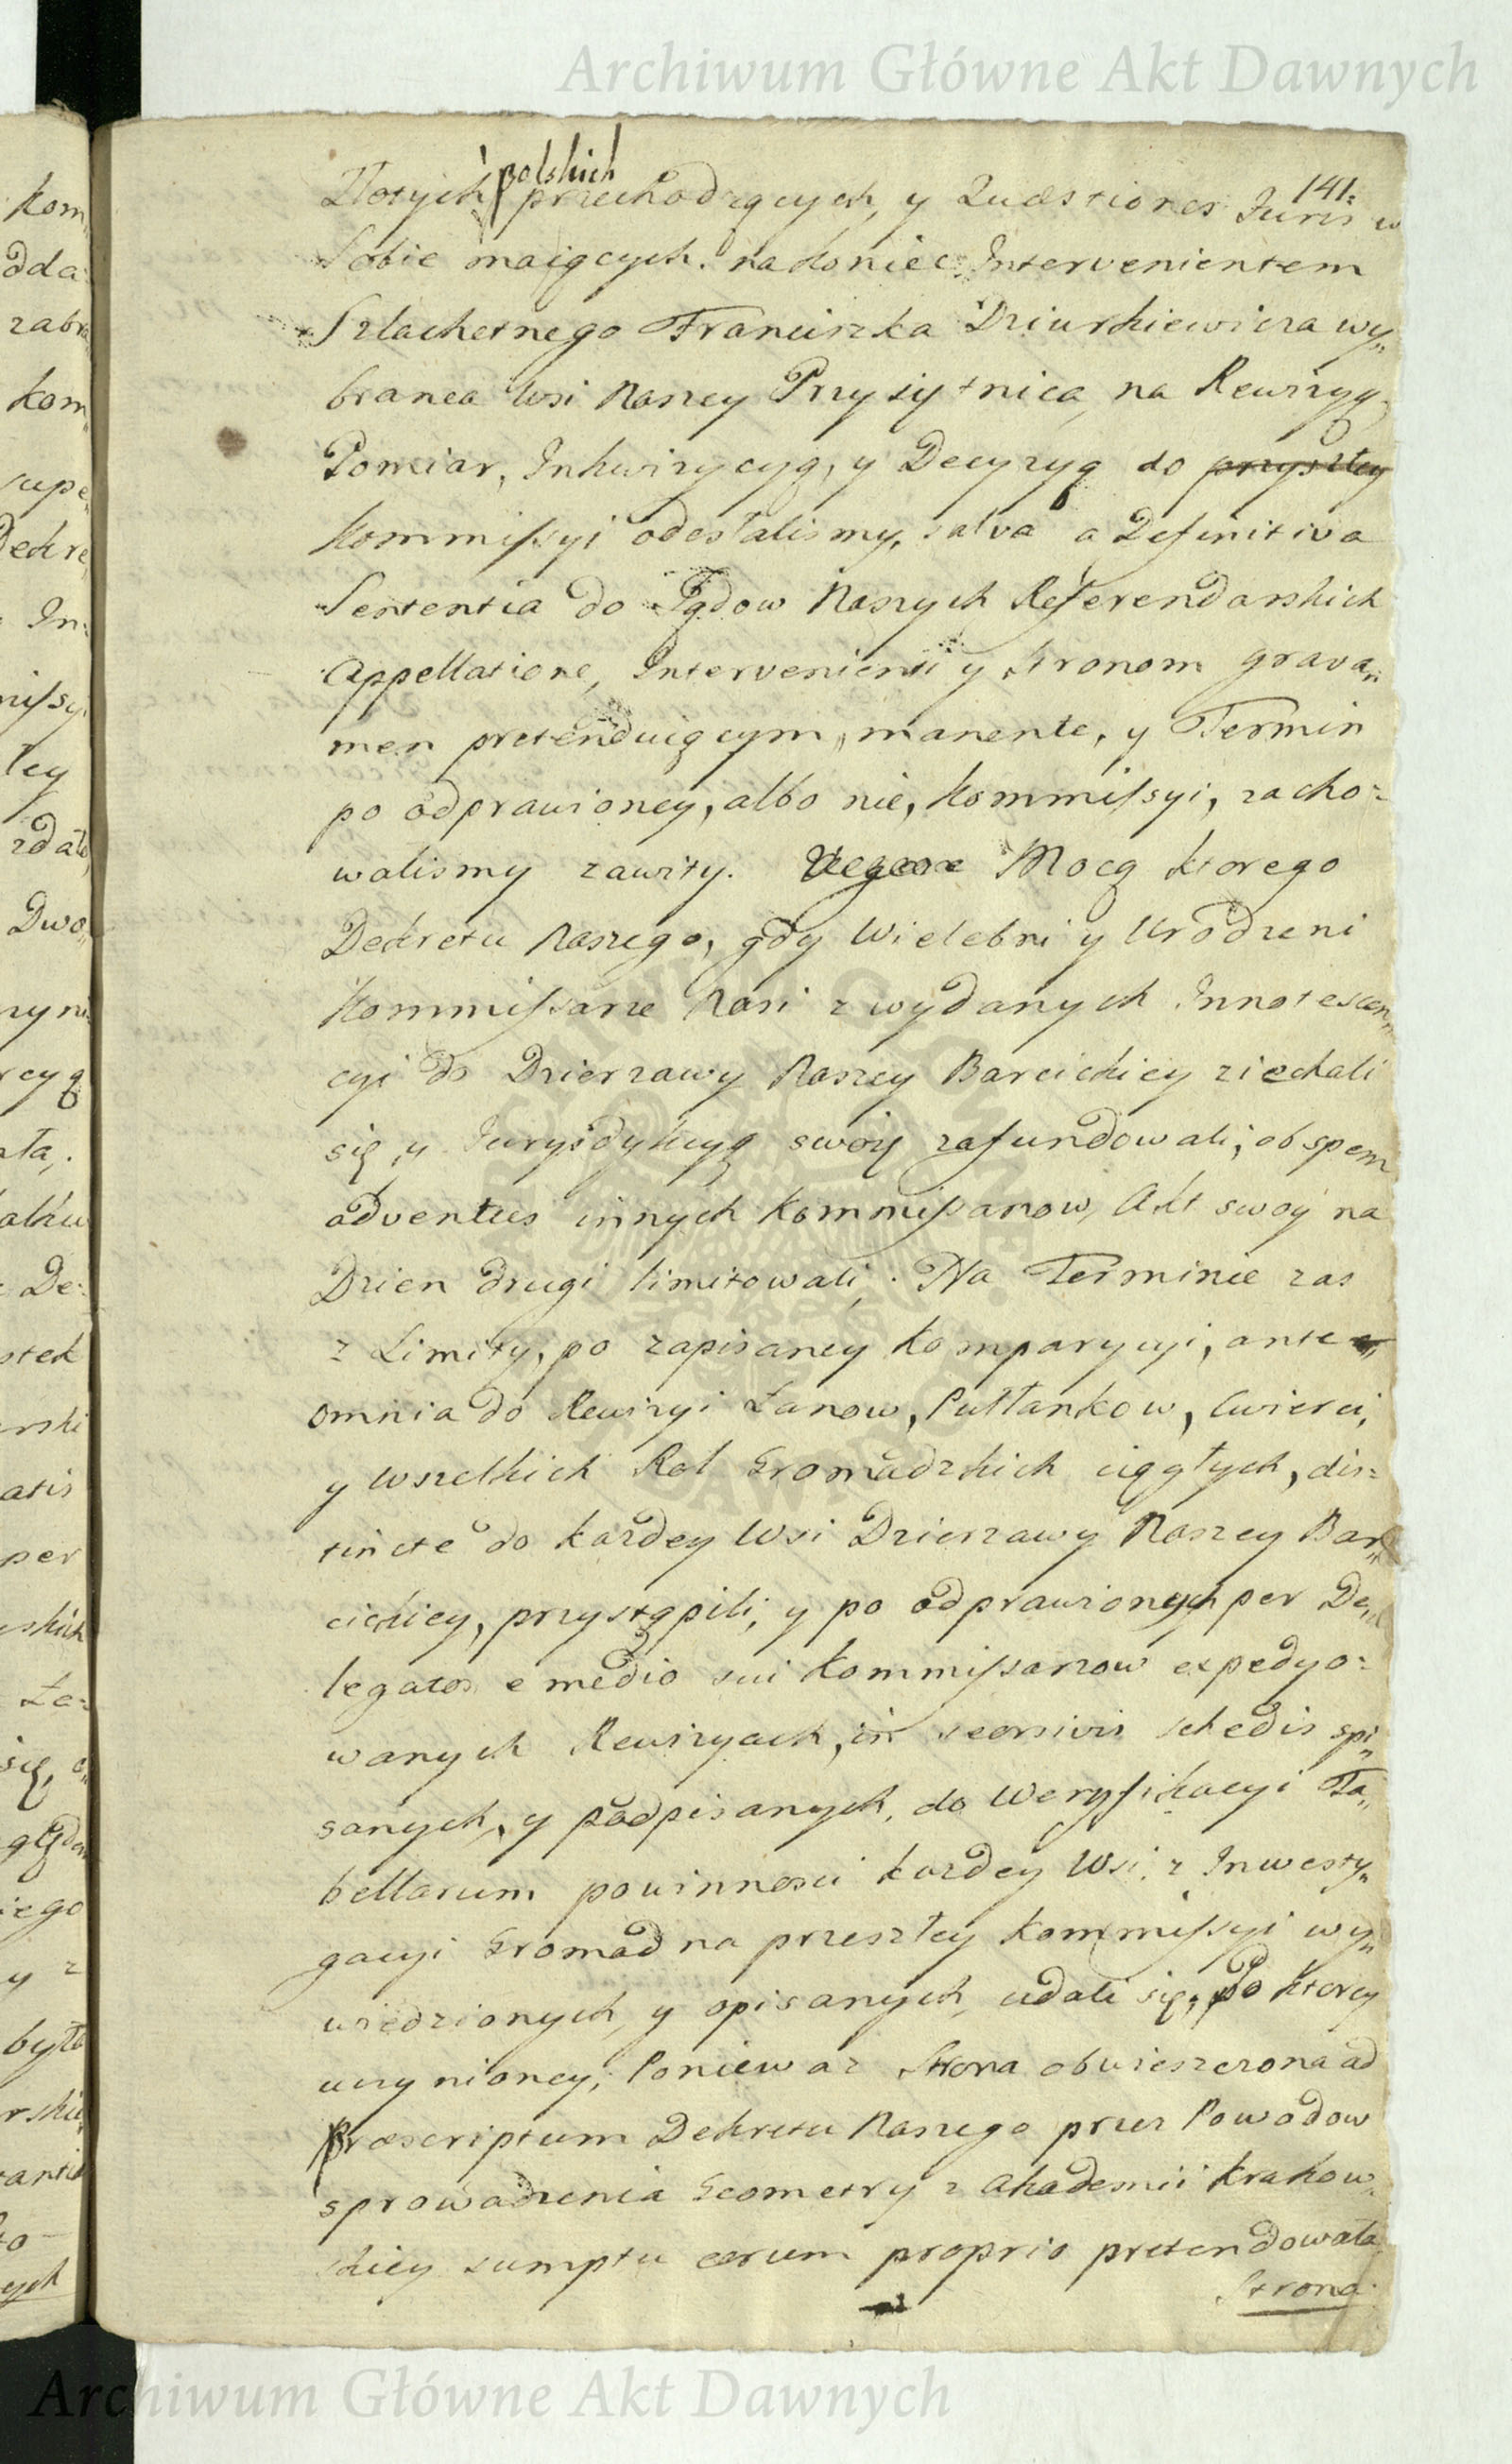 Archiwum Główne Akt Dawnych
141.
Złotych Polskich przechodzących, y Quæstiones Juris w
Sobie maiących. nakoniec Intervenientem
Szlachetnego Franciszka Dziurkiewicza wy„
branca Wsi Naszey Przysiętnica, na Rewizyą,
Pomiar, Inkwizycyą, y Decyzyą do przyszłey
Kommissyi odesłalismy, salva a Definitiva
Sententia do Sądow Naszych Referendarskich
Appellatione, Intervenienti y stronom grava„
men pretenduiącym, manente, y Termin
po odprawioney, albo nie, Kommissyi, zacho=
walismy zawity. Mocą ktorego
Dekretu Naszego, gdy Wielebni y Urodzeni
Kommissarze Nasi z wydanych Innotescen„
cyi do Dzierzawy Naszey Barcickiey ziechali
się, y Juryzdykcyą swoię zafundowali; ob spem
adventus innych Kommissarzow, Akt swoy na
Dzien drugi limitowali. Na Terminie zas
z Limity, po zapisaney Komparycyi, ante
omnia do Rewizyi Łanow, Pułłankow, Cwierci,
y wszelkich Rol Gromadzkich ciągłych, dis=
tincte do kazdey Wsi Dzierzawy Naszey Bar„
cickiey, przystąpili, y po odprawionych per De„
legatos e medio sui Kommissarzow expedyo=
wanych Rewizyach, in seorsivis schedis spi„
sanych, y podpisanych, do Weryfikacyi Ta„
bellarum powinnosci kazdey Wsi, z Inwesty„
gacyi Gromad na przeszłey Kommissyi wy„
wiedzionych, y opisanych, udali się, po ktorey
uczynioney, Poniewaz Strona obwieszczona ad
Præscriptum Dekretu Naszego przez Powodow
sprowadzenia Geometry z Akademii Krakow„
skiey sumptu eorum proprio pretendowała
Strona
Archiwum Główne Akt Dawnych